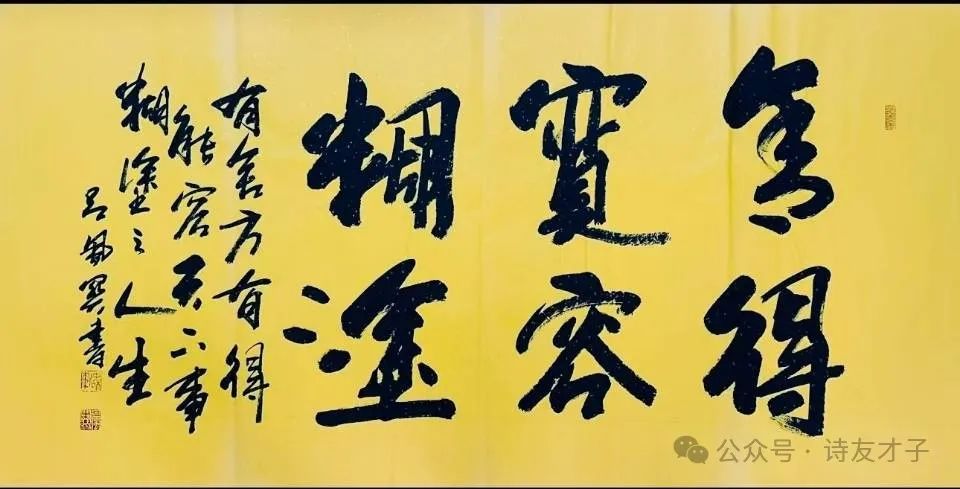 舍得
寬容
糊塗
有舍方有得
能容天下事
糊塗之人生
吕 書
公众号 · 诗友才子